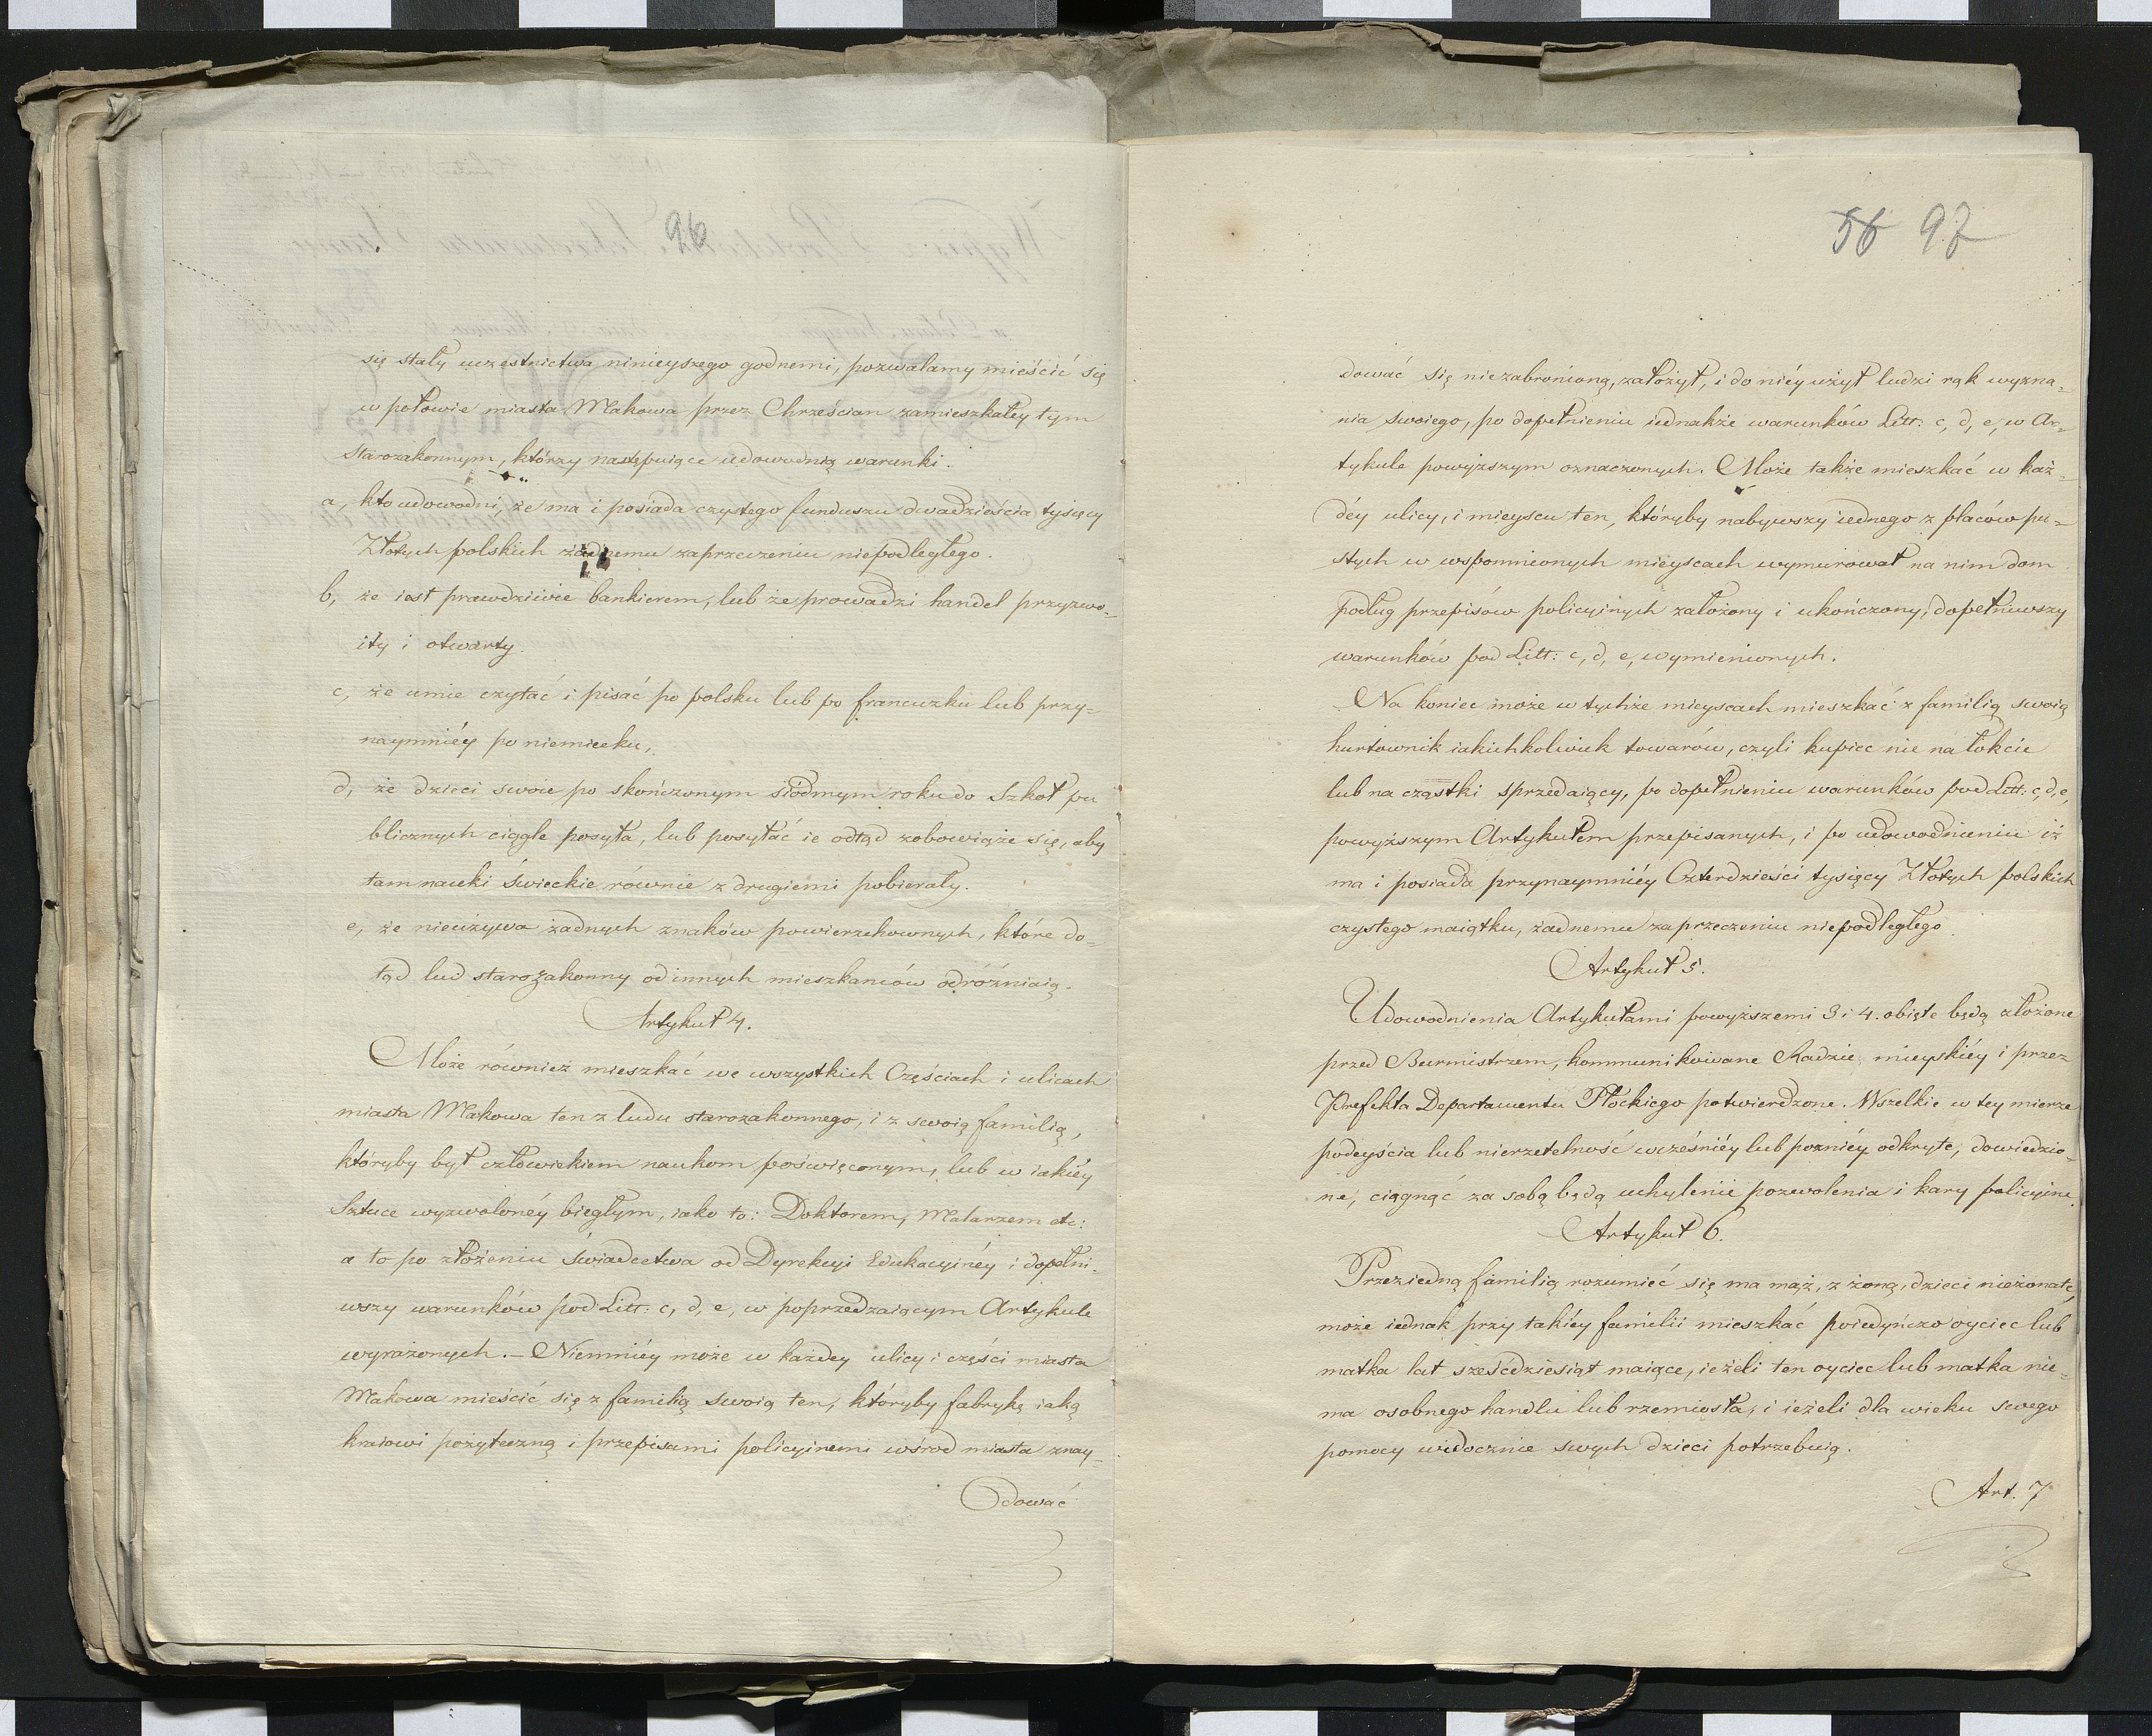 96
się stały uczestnictwa ninieyszego godnemi, pozwalamy mieścić się
w połowie miasta Makowa przez Chrześcian zamieszkałey tym
Starozakonnym, którzy następuiące udowodnią warunki.
a, kto udowodni, że ma i posiada czystego funduszu dwadzieścia tysięcy
Złotych polskich żadnemu zaprzeczeniu niepodległego.
b, że iest prawdziwie bankierem, lub że prowadzi handel przyzwo-
ity i otwarty.
c, że umie czytać i pisać po polsku lub po francuzku lub przy-
naymniéy po niemiecku,
d, że dzieci swoie po skończonym siódmym roku do Szkół pu
blicznych ciągle posyła, lub posyłać ie odtąd zobowiąże się, aby
tam nauki świeckie równie z drugiemi pobierały.
e, że nieużywa żadnych znaków powierzchownych, które do-
tąd lud starozakonny od innych mieszkańców odróżniaią.
Artykuł 4.
Może również mieszkać we wszystkich Częściach i ulicach
miasta Makowa ten z ludu starozakonnego, i z swoią familią,
któryby był człowiekiem naukom poświęconym, lub w iakiéy
Sztuce wyzwolonéy biegłym, iako to: Doktorem, Malarzem etc:
a to po złożeniu świadectwa od Dyrekcyi Edukacyinéy i dopełni-
wszy warunków pod Litt: c, d, e, w poprzedzaiącym Artykule
wyrażonych. — Niemniéy może w każdey ulicy i części miasta
Makowa mieścić się z familią swoią ten, któryby fabrykę iaką
kraiowi pożyteczną i przepisami policyinemi wśrod miasta znay-
dować
56 97
dować się niezabronioną, założył, i do niéy użył ludzi rąk wyzna-
nia swoiego, po dopełnieniu iednakże warunków Litt: c, d, e, w Ar-
tykule powyższym oznaczonych. Może także mieszkać w każ-
déy ulicy, i mieyscu ten, któryby nabywszy iednego z placów pu-
stych w wspomnionych mieyscach wymurował na nim dom
podług przepisów policyinych założony i ukończony, dopełniwszy
warunków pod Litt: c, d, e, wymienionych.
Na koniec może w tychże mieyscach mieszkać z familią swoią
hurtownik iakichkolwiek towarów, czyli kupiec nie na łokcie
lub na cząstki sprzedaiący, po dopełnieniu warunków pod Litt: c, d, e,
powyższym Artykułem przepisanych, i po udowodnieniu iż
ma i posiada przynaymniéy Czterdzieści tysięcy Złotych polskich
czystego maiątku, żadnemu zaprzeczeniu niepodległego.
Artykuł 5.
Udowodnienia Artykułami powyższemi 3 i 4. obięte będą złożone
przed Burmistrzem, kommunikowane Radzie mieyskiéy i przez
Prefekta Departamentu Płockiego potwierdzone. Wszelkie w tey mierze
podeyścia lub nierzetelność wcześniéy lub pozniéy odkryte, dowiedzio-
ne, ciągnąć za sobą będą uchylenie pozwolenia i kary policyine.
Artykuł 6.
Przez iedną familią rozumieć się ma mąż, z żoną, dzieci nieżonate,
może iednak przy takiéy familii mieszkać poiedyńczo oyciec lub
matka lat sześćdziesiąt maiące, ieżeli ten oyciec lub matka nie-
ma osobnego handlu lub rzemiosła, i ieżeli dla wieku swego
pomocy widocznie swych dzieci potrzebuią.
Art. 7